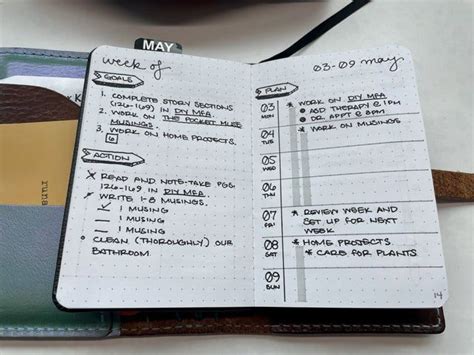 MAY
week of
GOALS
1. COMPLETE STORY SECTIONS
(126-169) IN DIY MFA.
2. WORK ON THE POCKET MUSE
MUSINGS.
3. WORK ON HOME PROJECTS.
6
ACTION
READ AND NOTE-TAKE PGS.
126-169 IN DIY MFA.
WRITE 1-3 MUSINGS.
1 MUSING
1 MUSING
1 MUSING
CLEAN (THOROUGHLY) OUR
BATHROOM
03-09 may
PLAN
03 MON
WORK ON DIY MFA
ASD THERAPY @ 1PM
DR. APPT @ 3PM
04 TUE
WORK ON MUSINGS
05 WED
06 THU
07 FRI
REVIEW WEEK AND
SET UP FOR NEXT
WEEK
08 SAT
HOME PROJECTS
CARE FOR PLANTS
09 SUN
14